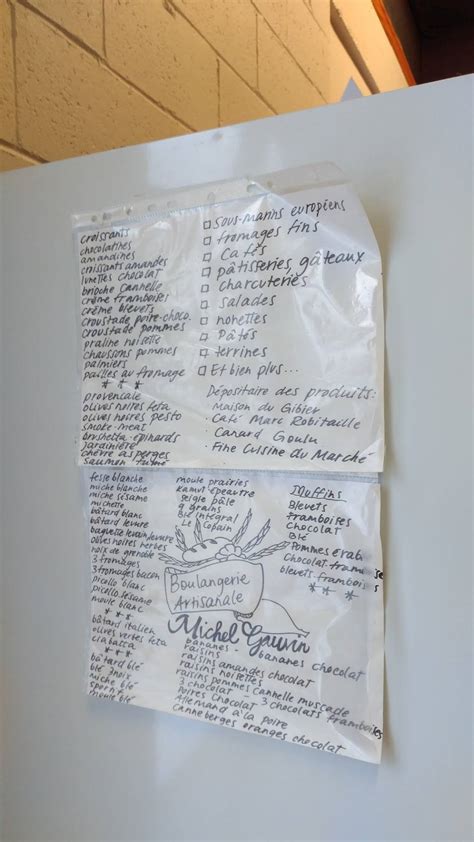 croissants
chocolatines
amandines
croissants amandes
lunettes chocolat
brioche cannelle
crème framboises
crème bleuets
croustade poire-choco.
croustade pommes
praline noisette
chaussons pommes
palmiers
pailles au fromage
* * *
provencale
olives noires feta
olives noires pesto
smoke-meat
brushetta-epinards
jardinière
chèvre asperges
saumon fumé
□ sous-marins européens
□ fromages fins
□ Cafés
□ pâtisseries, gâteaux
□ charcuteries
□ salades
□ nonettes
□ Pâtés
□ terrines
□ Et bien plus...
Dépositaire des produits:
Maison du Gibier
· Café Marc Robitaille
· Canard Goulu
· Fine Cuisine du Marché
fesse blanche
miche blanche
miche sésame
michette
bâtard blanc
bâtard levure
baguette levain, levure
olives noires herbes
noix de grenoble
3 fromages
3 fromages bacon
picollo blanc
picollo sésame
moule blanc
* * *
bâtard italien
olives vertes feta
ciabatta
* * *
bâtard blé
blé 3 noix
miche blé
moule blé
moule prairies
Kamut épeautre
seigle pâle
9 grains
Blé intégral
Le Copain
Muffins
Bleuets
Framboises
Chocolat
Blé
Pommes érab
Chocolat framboise
bleuets framboises
* * *
Boulangerie
Artisanale
Michel Gauvin
bananes - bananes chocolat
raisins
raisins amandes chocolat
raisins noisettes
raisins pommes cannelle muscade
3 chocolat - 3 chocolats framboises
Poires Chocolat
Allemand à la poire
Canneberges oranges chocolat